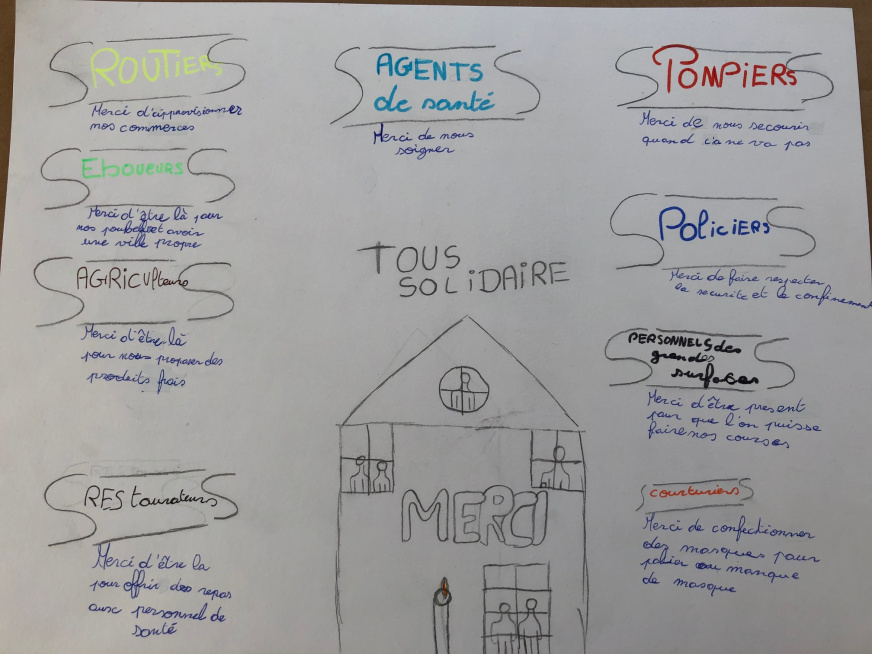 ROUTIERS
Merci d'approvisionner
nos commerces
Eboueurs
Merci d'être là pour
nos poubelles et avoir
une ville propre
AGRICULteurs
Merci d'être là
pour nous proposer des
produits frais
REStaurateurs
Merci d'être la
pour offrir des repas
aux personnel de
santé
AGENTS
de santé
Merci de nous
soigner
TOUS
SOLIDAIRE
MERCI
POMPIERS
Merci de nous secourir
quand ça ne va pas
POLICIERS
Merci de faire respecter
la securite et le confinement
PERSONNELS des
grandes
surfaces
Merci d'être present
pour que l'on puisse
faire nos courses
couturiers
Merci de confectionner
des masques pour
palier au manque
de masque